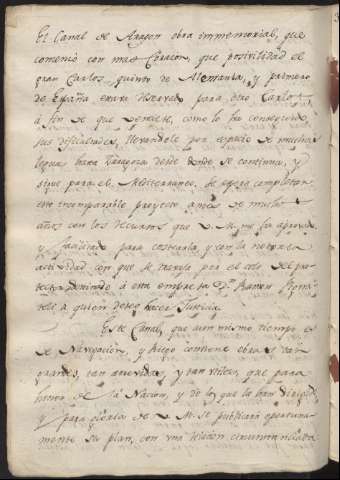 El Canal de Aragon obra immemorial, que
comenzó con mas Corazon, que posivilidad el
gran Carlos quinto de Alemania, y primero
de España, estava reservado para otro Carlos
á fin de que venciese, como lo ha conseguido
sus dificultades, llevandole por espacio de muchas
leguas hasta Zaragoza desde donde se continua, y
sigue para el Mediterraneo. Se espera completar
este incomparable proyecto antes de mucho
años con los recursos que V. M. ha aprovado
y facilitado para costearla, y con la notoria
actividad con que se travaja por el celo del pro-
tector destinado á esta empresa Dn. Ramon Pigna-
teli á quien deseo hacer Justicia.
Este Canal, que aun mismo tiempo es
de Navegacion, y Riego contiene obras tan
grandes, tan atrevidas, y tan utiles, que para
honor de la Nacion, y de los que la han dirigido
y para gloria de V. M. se publicará oportuna-
mente su plan, con una relacion circunstanciada